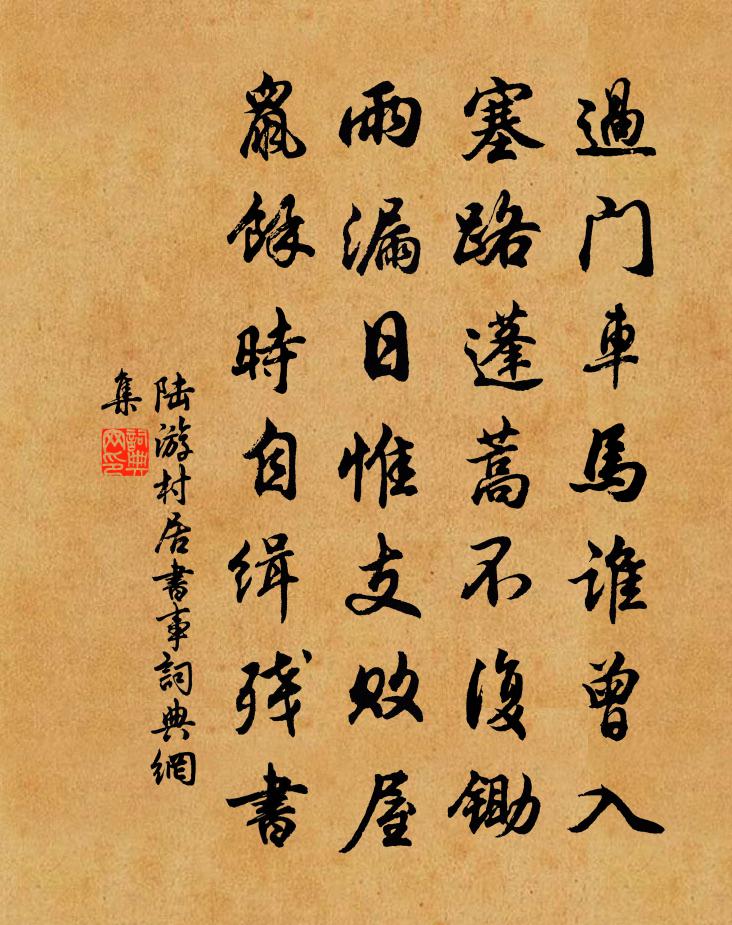 過门車馬谁曾入
塞路蓬蒿不復鋤
雨漏日惟支败屋
鼠餘時自缉残書
陆游村居書事詞典網
集
詞典
网印